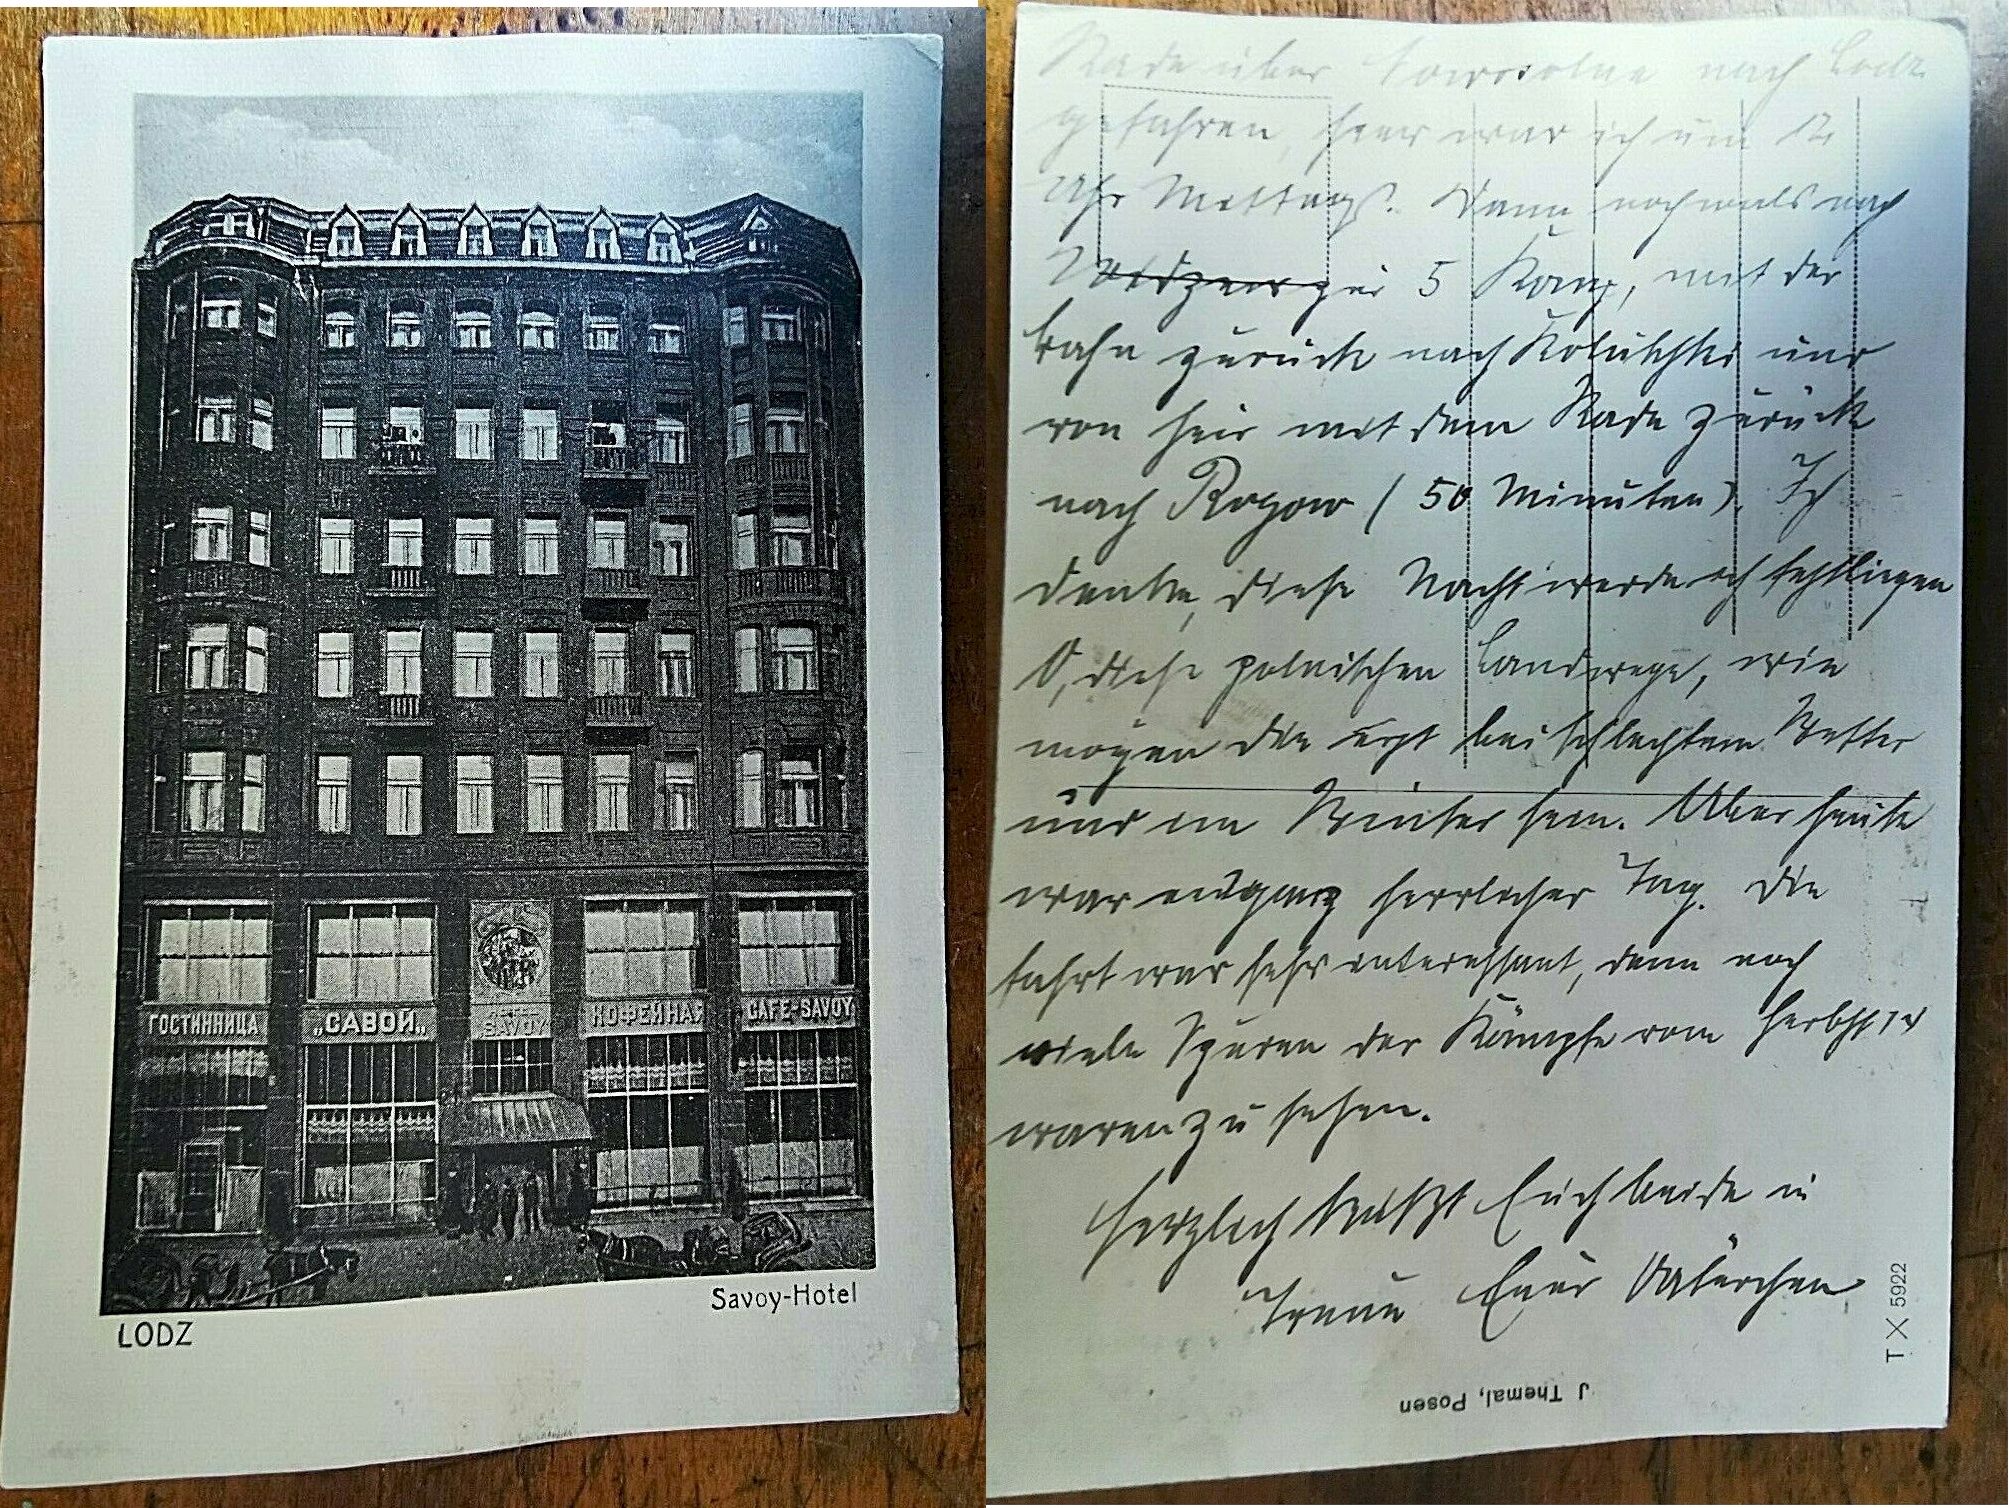 ГОСТИННИЦА
„САВОЙ„
HOTEL
SAVOY
КОФЕЙНАЯ
CAFE-SAVOY
Savoy-Hotel
LODZ
Rade über Nowosolna nach Lodz
gefahren, hier war ich um 12
Uhr Mittags. Dann nochmals nach
zur 5 Komp, mit der
Bahn zurück nach Koluschki und
von hier mit dem Rade zurück
nach Rogow (50 Minuten). Ich
denke, diese Nacht werde ich festliegen
O, diese polnischen Landwege, wie
mögen die erst bei schlechtem Wetter
und im Winter sein. Aber heute
war ein ganz herrlicher Tag. Die
Fahrt war sehr interessant, denn noch
viele Spuren der Kämpfe vom Herbst 14
waren zu sehen.
Herzlich küßt Euch beide in
Treue Euer Vaterchen
T X 5922
J Themal, Posen